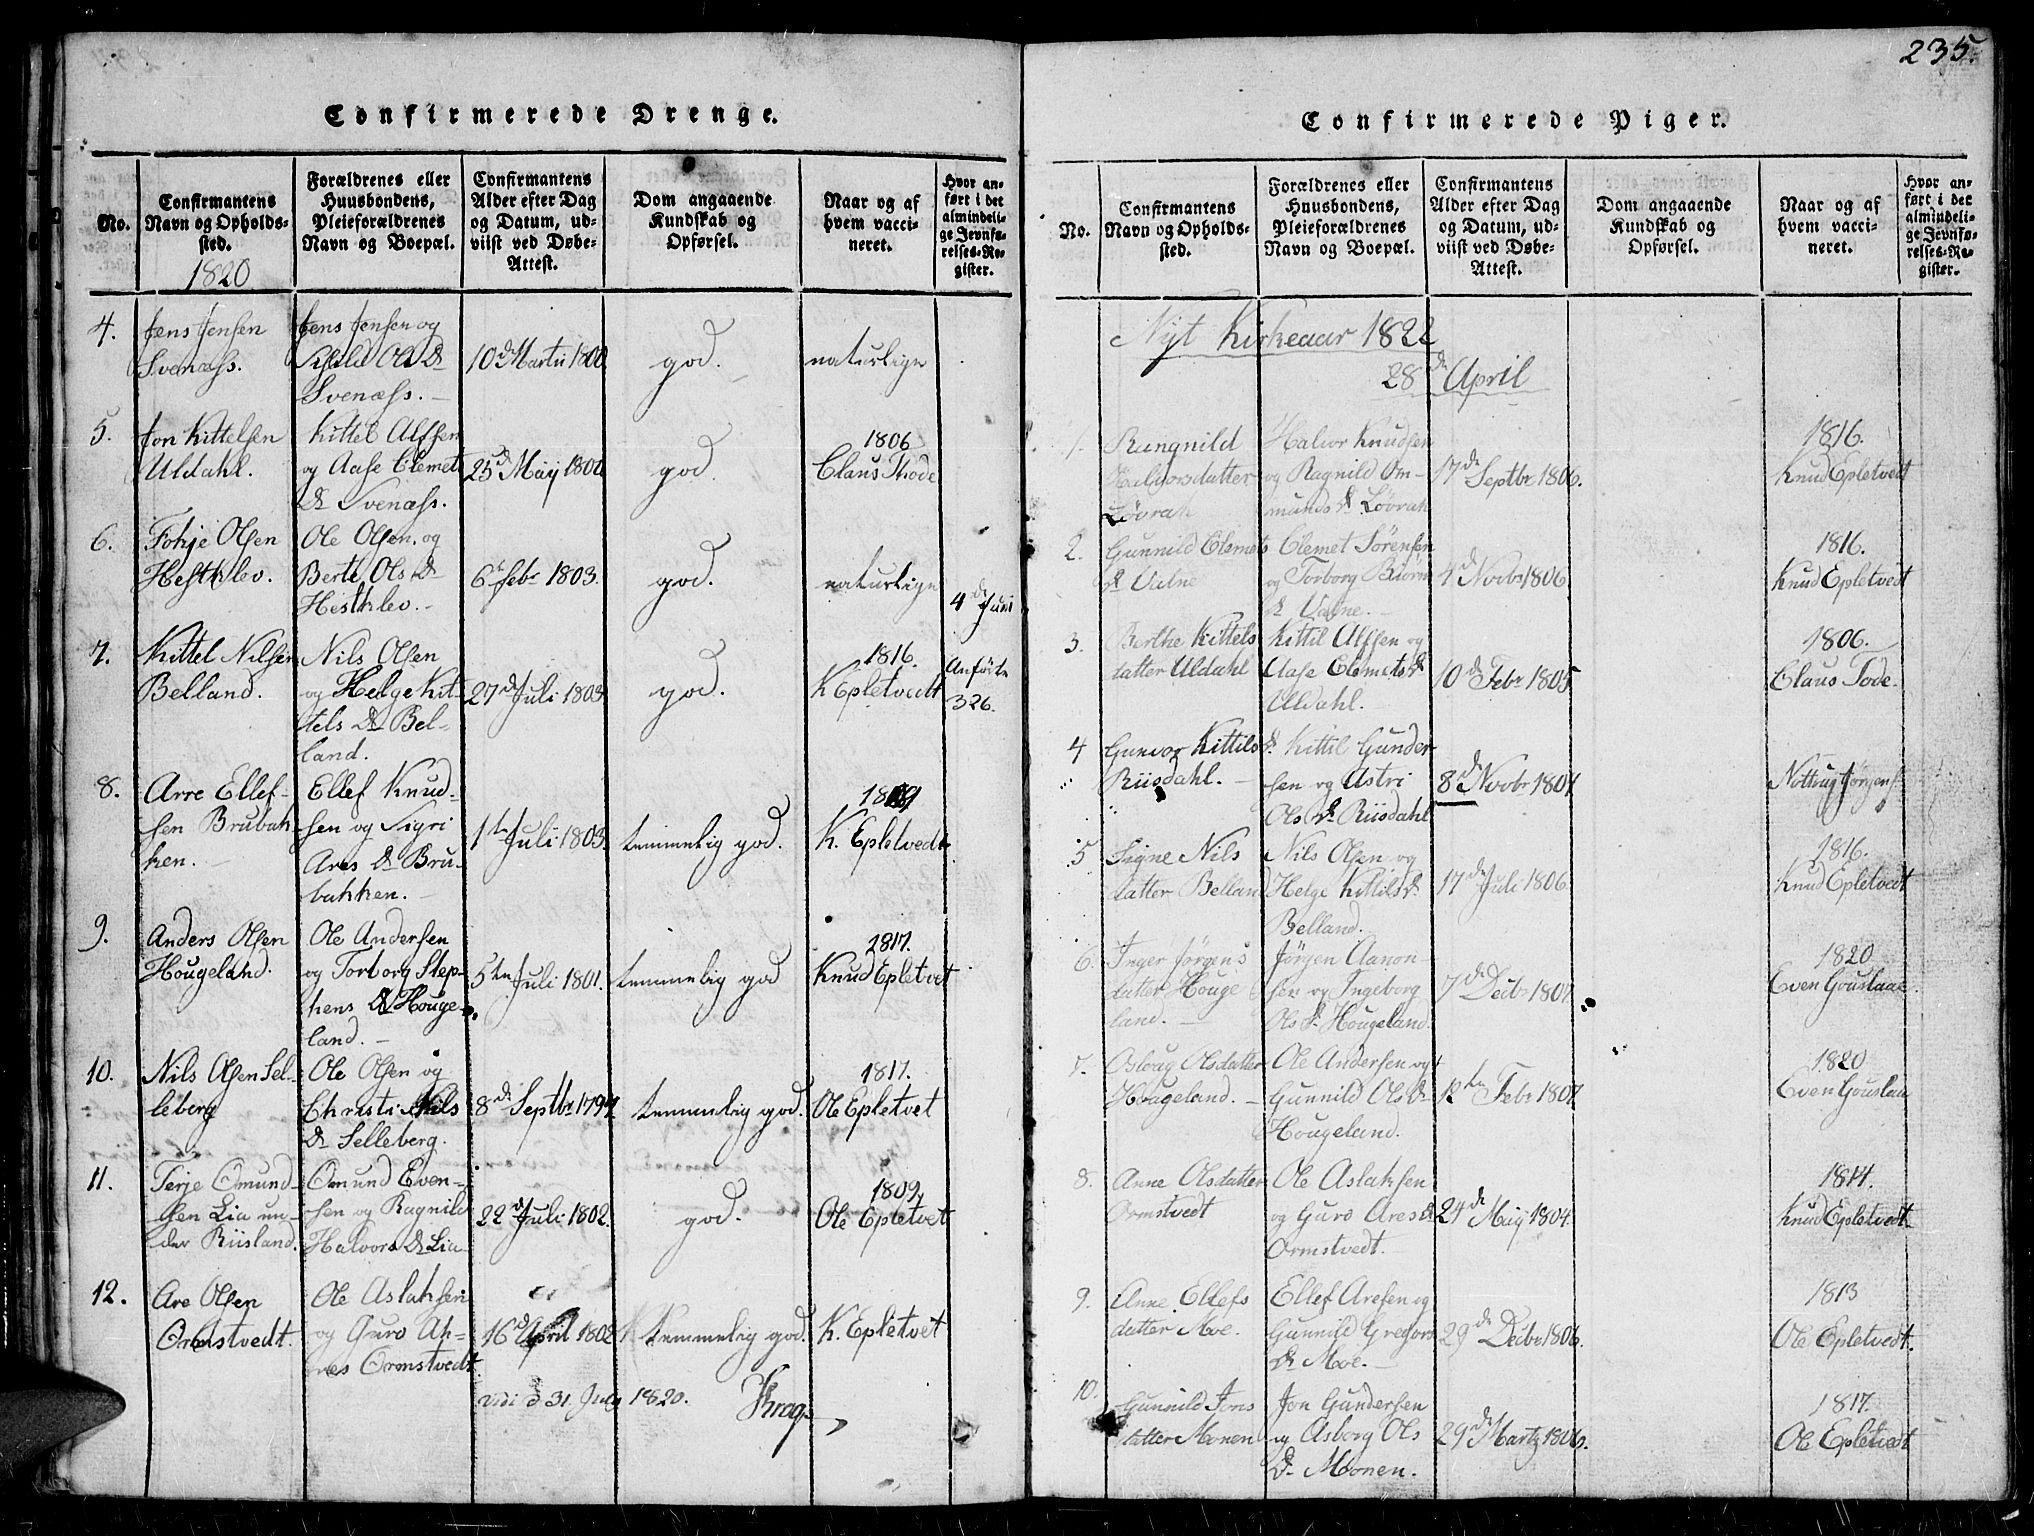 235.
Confirmerede Drenge.
No.
Confirmantens
Navn og Opholds-
sted.
1820
Forældrenes eller
Huusbondens,
Pleieforældrenes
Navn og Boepæl.
Confirmantens
Alder efter Dag
og Datum, ud-
viist ved Døbe-
Attest.
Dom angaaende
Kundskab og
Opførsel.
Naar og af
hvem vacci-
neret.
Hvor an-
ført i det
almindeli-
ge Jevnfø-
relses-Re-
gister.
4.
Jens Jensen
Svenæss.
Jens Jensen og
Ols D
Svenæss.
10d Martii 1800.
god.
naturlige
5.
Jon Kittelsen
Uldahl.
Kittel Alfsen
og Aase Clemet
D Svenæss.
25d Maij 1802
god.
1806
Claus Thode
6.
Fohje Olsen
Hesthlev.
Ole Olsen og
Berte Ols D
Hesthlev.
6te febr 1803.
god.
naturlige
4de Juni
7.
Kittel Nilsen
Belland.
Nils Olsen
og Helge Kit-
tels D Bel-
land.
27d Juli 1803
god.
1816.
K Epletvedt
Anførte
326.
8.
Arre Ellef-
sen Brubak
ken.
Ellef Knud-
sen og Sigri
Ares D Bru-
bakken.
1te Juli 1803.
temmelig god.
K. Epletvedt
9.
Anders Olsen
Hougeland.
Ole Andersen
og Torborg Step-
hens D Houge-
land.
5te Juli 1801.
temmelig god
1817.
Knud Epletvet
10.
Nils Olsen Sel-
leberg
Ole Olsen og
Christi Nils
D Selleberg.
8d Septbr 1797.
temmelig god.
1817.
Ole Epletvet
11.
Terje Omund-
sen Lia un-
der Riisland.
Omund Even-
sen og Ragnild
Halvors D Lia
22d Juli 1802.
god.
1809
Ole Epletvet
12.
Are Olsen
Ormstvedt.
Ole Aslaksen
og Guro
Ormstvedt.
16d April 1802
temmelig god.
K. Epletvet
vidi d 31 July 1820. Krag
Confirmerede Piger.
No.
Confirmantens
Navn og Opholds-
sted.
Forældrenes eller
Huusbondens,
Pleieforældrenes
Navn og Boepæl.
Confirmantens
Alder efter Dag
og Datum, ud-
viist ved Døbe-
Attest.
Dom angaaende
Kundskab og
Opførsel.
Naar og af
hvem vacci-
neret.
Hvor an-
ført i det
almindeli-
ge Jevnfø-
relses-Re-
gister.
Nyt Kirkeaar 1822
28de April
1.
Rungnild
Halvorsdatter
Løvrak
Halvor Knudsen
og Ragnild Om-
munds D Løvrak
17de Septbr 1806.
1816.
Knud Epletvedt
2.
Gunnild Clemets
D Valne
Clemet Sørensen
og Torborg Biørn
D Valne.
4d Novbr 1806
1816.
Knud Epletvedt
3.
Berthe Kittels
datter Uldahl
Kittil Alfsen og
Aase Clemets D
Uldahl.
10de Febr 1805
1806.
Claus Tode.
4
Gunvor Kittils D.
Riisdahl.
Kittil Gunder
sen og Astri
Ols D Riisdahl
8de Novbr 1807.
Nottrug Jørgens.
5
Signe Nils
datter Belland
Nils Olsen og
Helge Kittils D
Belland.
17de Juli 1806.
1816.
Knud Epletvedt
6.
Inger Jørgens
datter Houge
land.
Jørgen Aanon
sen og Ingeborg
Ols D. Hougeland.
7de Decbr 1807.
1820
Even Gouslaae
7.
Oslaug Olsdatter
Hougeland.
Ole Andersen og
Gunnild Ols D
Hougeland.
12te Febr 1807.
1820
Even Gouslaa
8.
Anne Olsdatter
Ormstvedt
Ole Aslaksen
og Guro Ares D
Ormstvedt.
24de Maij 1804.
1814.
Knud Epletvedt
9.
Anne Ellefs
datter Moe.
Ellef Aresen og
Gunnild Gregors
D Moe.
29de Decbr 1806.
1813
Ole Epletvedt.
10.
Gunnild Jons
datter Monen
Jon Gundersen
og Asborg Ols
D Moonen.
29de Martz 1806.
1817.
Ole Epletvedt